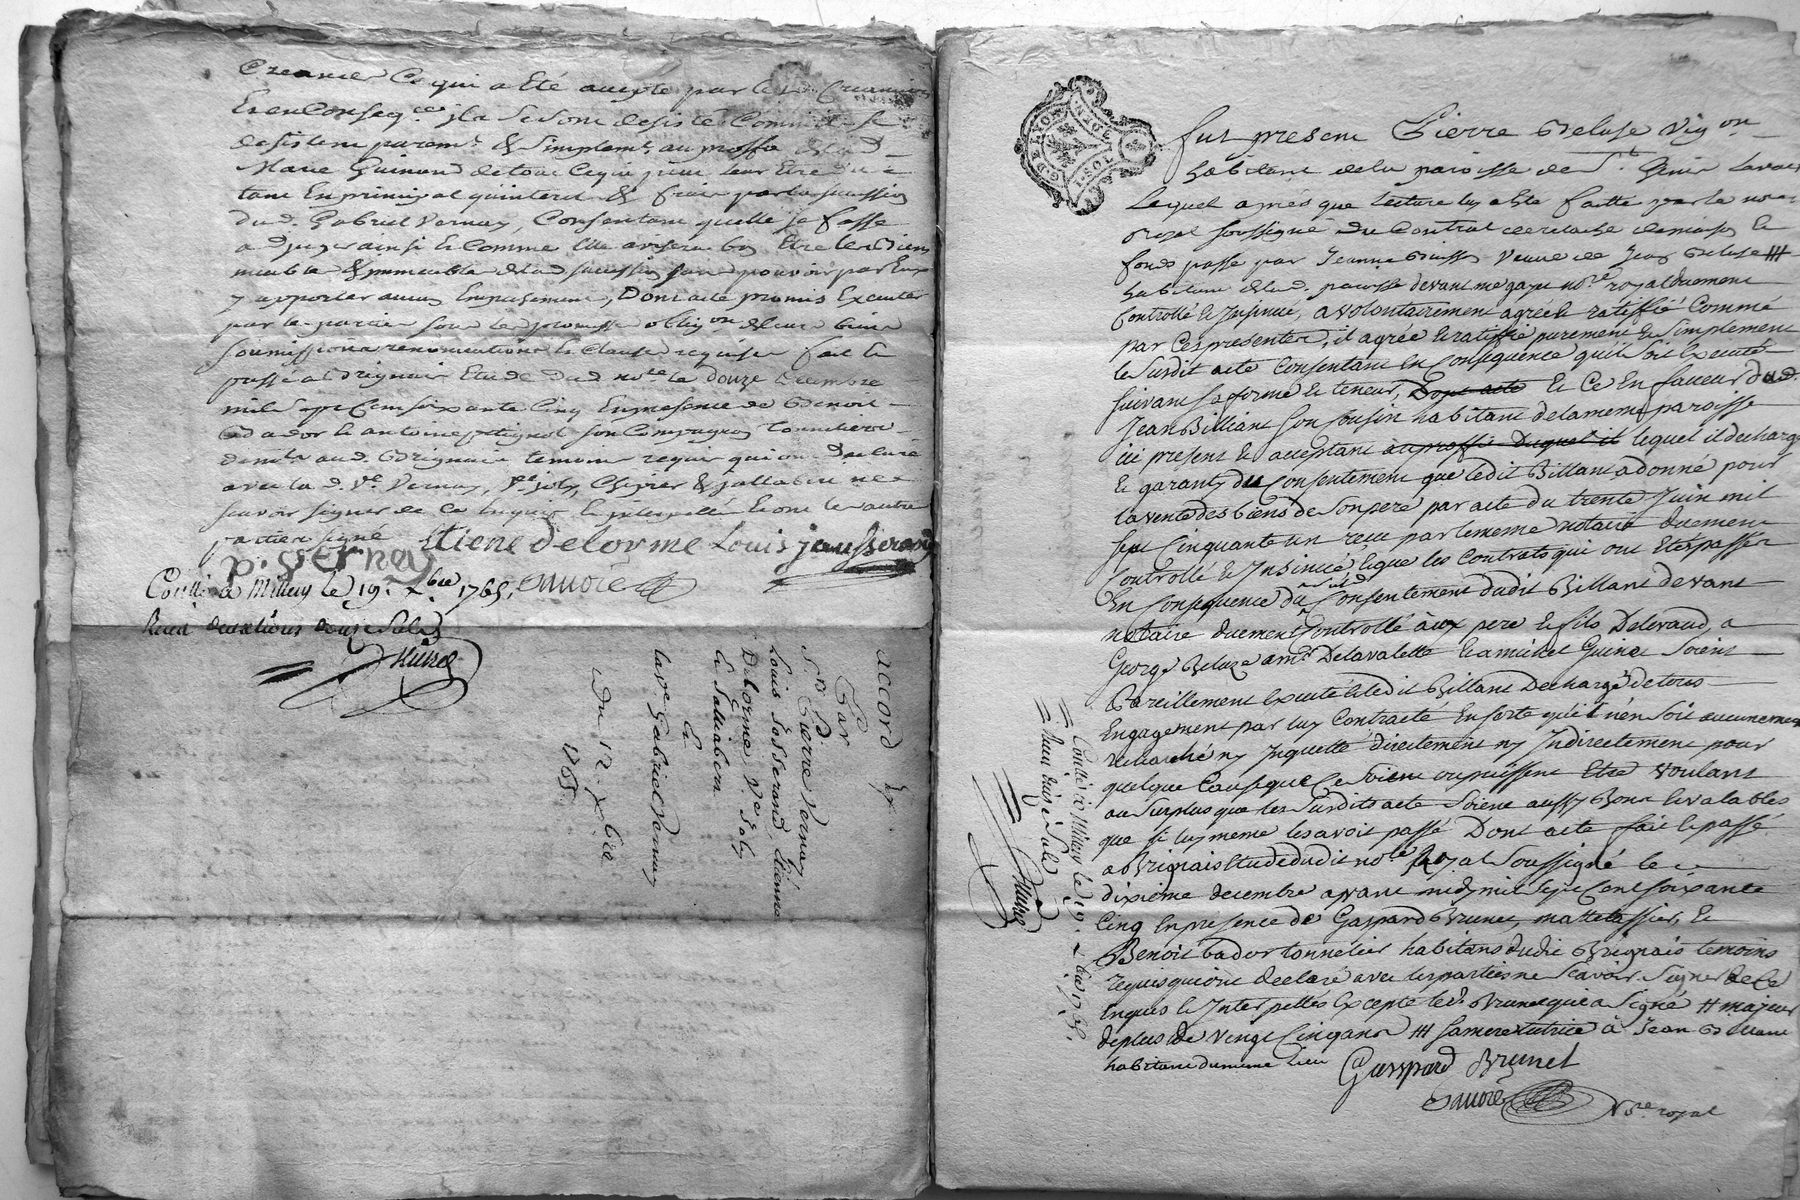 Creance Ce qui a été accepté par le
Et en Conseq.ce se sont desistés Comme Ils se
desistent purem.t & Simplem.t au proffit de lad.
Marie Guinand de tout Ce qui peut leur Etre du
tant En principal qu'interet & frais par la succession
dud. Gabriel Vernay, Consentant quelle se fasse
adjuger ainsi & Comme Elle avisera bon Etre les Biens
meuble & immeuble de lad succession sans pouvoir par Eux
y apporter aucun Empeschement, Dont acte promis Executer
par les parties sous les promesses oblig.on de leurs biens
soumissions renonciations & Clauses requises fait &
passé a Brignais Etude dud no.re le douze decembre
mil sept Cent soixante Cinq En presence de Benoit
Bador & antoine son Compagnon Tonneliers
dem.ts aud. Brignais temoins requis qui ont Declaré
avec la d. V.e Vernay, V.e joly, & jallabert ne
scavoir signer de Ce Enquis & Interpellé & ont les autres
parties signé
p. Vernay Etiene delorme Louis jausserand
Conllé a Millery le 19. Xbre 1765. Savoie
Receu deux livres douze sols
accord
Par
S.rs Pierre Vernay
Louis Josserand Etienne
Delorme V.e Joly
& Jallabert
La V.e Gabriel Vernay
Du 12 Xbre
1765
G. DE LYON
fut present Pierre Beluse Vig.on
habitant de la paroisse de S.t Genis Laval
Lequel après que lecture luy a été faitte par le no.re
royal soussigné du Contrat de relache de maison &
fonds passé par Jeanne Buisson Veuve de Jean Beluse #
habitant de lad. paroisse devant me gayet no.re royal duement
Controllé & Insinué, a volontairement agréé & ratiffié Comme
par Ces presentes, il agrée & ratiffie purement & simplement
le Surdit acte Consentant en Conséquence qu'il Soit Executé
suivant sa forme & teneur, Dont acte & Ce En faveur dud.
Jean Billiant son Cousin habitant de la meme paroisse
ici present & acceptant au proffit Duquel il lequel il decharge
& garantis du Consentement que ledit Billiant a donné pour
la vente des biens de son pere par acte du trente Juin mil
sept Cinquante un receu par le meme notaire duement
Controllé & Insinué, & que les Contrats qui ont Eté passés
En Consequence du susd Consentement dudit Billiant devant
notaire duement Controllé aux pere & fils Delevaud, a
George Beluze am.t Delavalette & a michel Guinet Soient
Pareillement Executé & ledit Billiant Dechargé de tous
Engagement par luy Contracté En sorte qu'il n'en soit aucunement
recherché ny Inquietté directement ny Indirectement pour
quelque Cause que Ce Soient ou puissent Etre voulant
au Surplus que les Surdits acte Soient aussy Bons & valables
que si luy meme les avoit passé Dont acte fait & passé
a Brignais Etude dudit no.re Royal Soussigné le
dixieme decembre avant midy mil sept Cent soixante
Cinq En presence de Gaspard Brunet, mattelassier, &
Benoit bador tonnelier habitans dudit Brignais temoins
requis qui ont declaré avec les parties ne Scavoir Signer de Ce
Enquis & Interpellés Excepté led. Brunet qui a Signé # majeur
de plus de Vingt Cinq ans # sa mere tutrice à Jean
habitant du meme lieu Gaspard Brunet
Savoie N.re royal
Conllé à Millery le 19. Xbre 1765.
Receu dix Sols